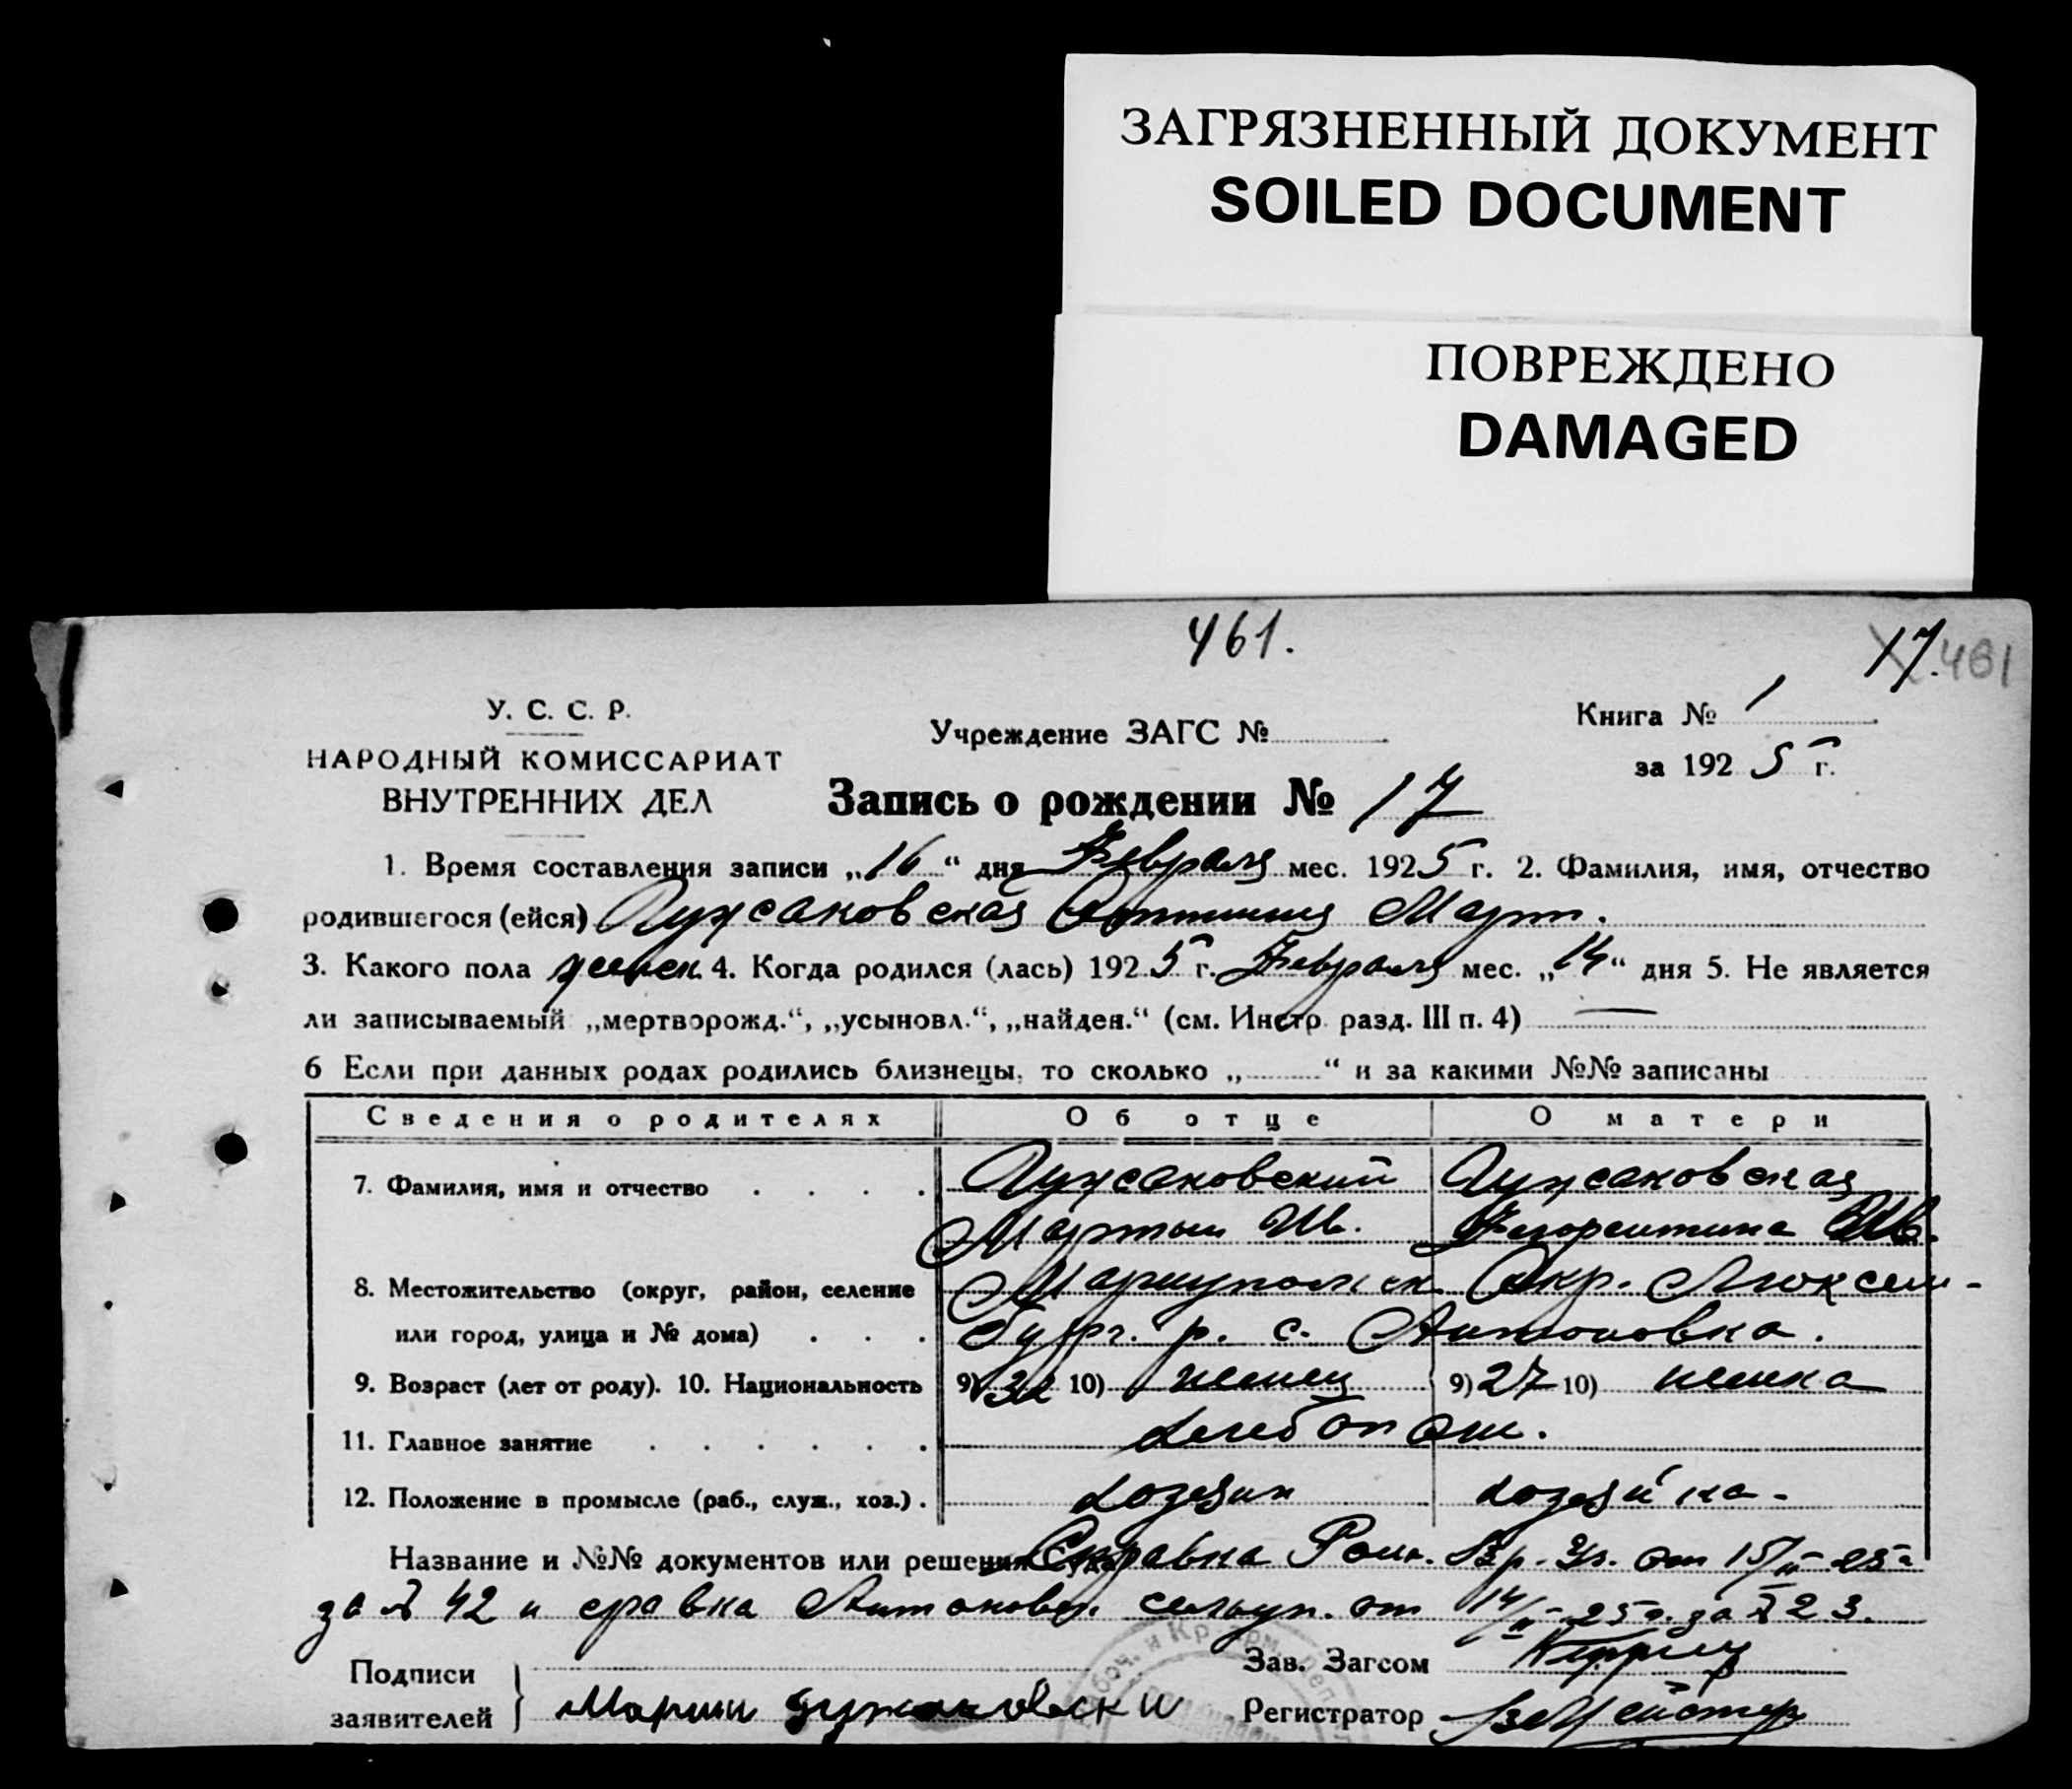 ЗАГРЯЗНЕННЫЙ ДОКУМЕНТ
SOILED DOCUMENT
ПОВРЕЖДЕНО
DAMAGED
461.
17. 461
У. С. С. Р.
НАРОДНЫЙ КОМИССАРИАТ
ВНУТРЕННИХ ДЕЛ
Учреждение ЗАГС №
Книга № 1
за 1925 г.
Запись о рождении № 17
1. Время составления записи „16“ дня Февраля мес. 1925 г. 2. Фамилия, имя, отчество
родившегося (ейся) Март.
3. Какого пола женск. 4. Когда родился (лась) 1925 г. Февраля мес. „14“ дня 5. Не является
ли записываемый „мертворожд.“, „усыновл.“, „найден.“ (см. Инстр. разд. III п. 4) —
6 Если при данных родах родились близнецы, то сколько „ “ и за какими №№ записаны
Сведения о родителях Об отце О матери
7. Фамилия, имя и отчество
Мартын Ив. Флорентина Ив.
8. Местожительство (округ, район, селение Мариупольск. Окр. Люксем-
или город, улица и № дома) бург. р. с. Антоновка.
9. Возраст (лет от роду). 10. Национальность 9) 32 10) немец 9) 27 10) немка
11. Главное занятие хлебопаш.
12. Положение в промысле (раб., служ., хоз.) хозяин хозяйка
Название и №№ документов или решения Суда Справка от 15/II-25 г.
за № 42 и справка Антоновск. сельуп. от 14/II-25 г. за № 23.
Подписи
заявителей
Зав. Загсом
Регистратор